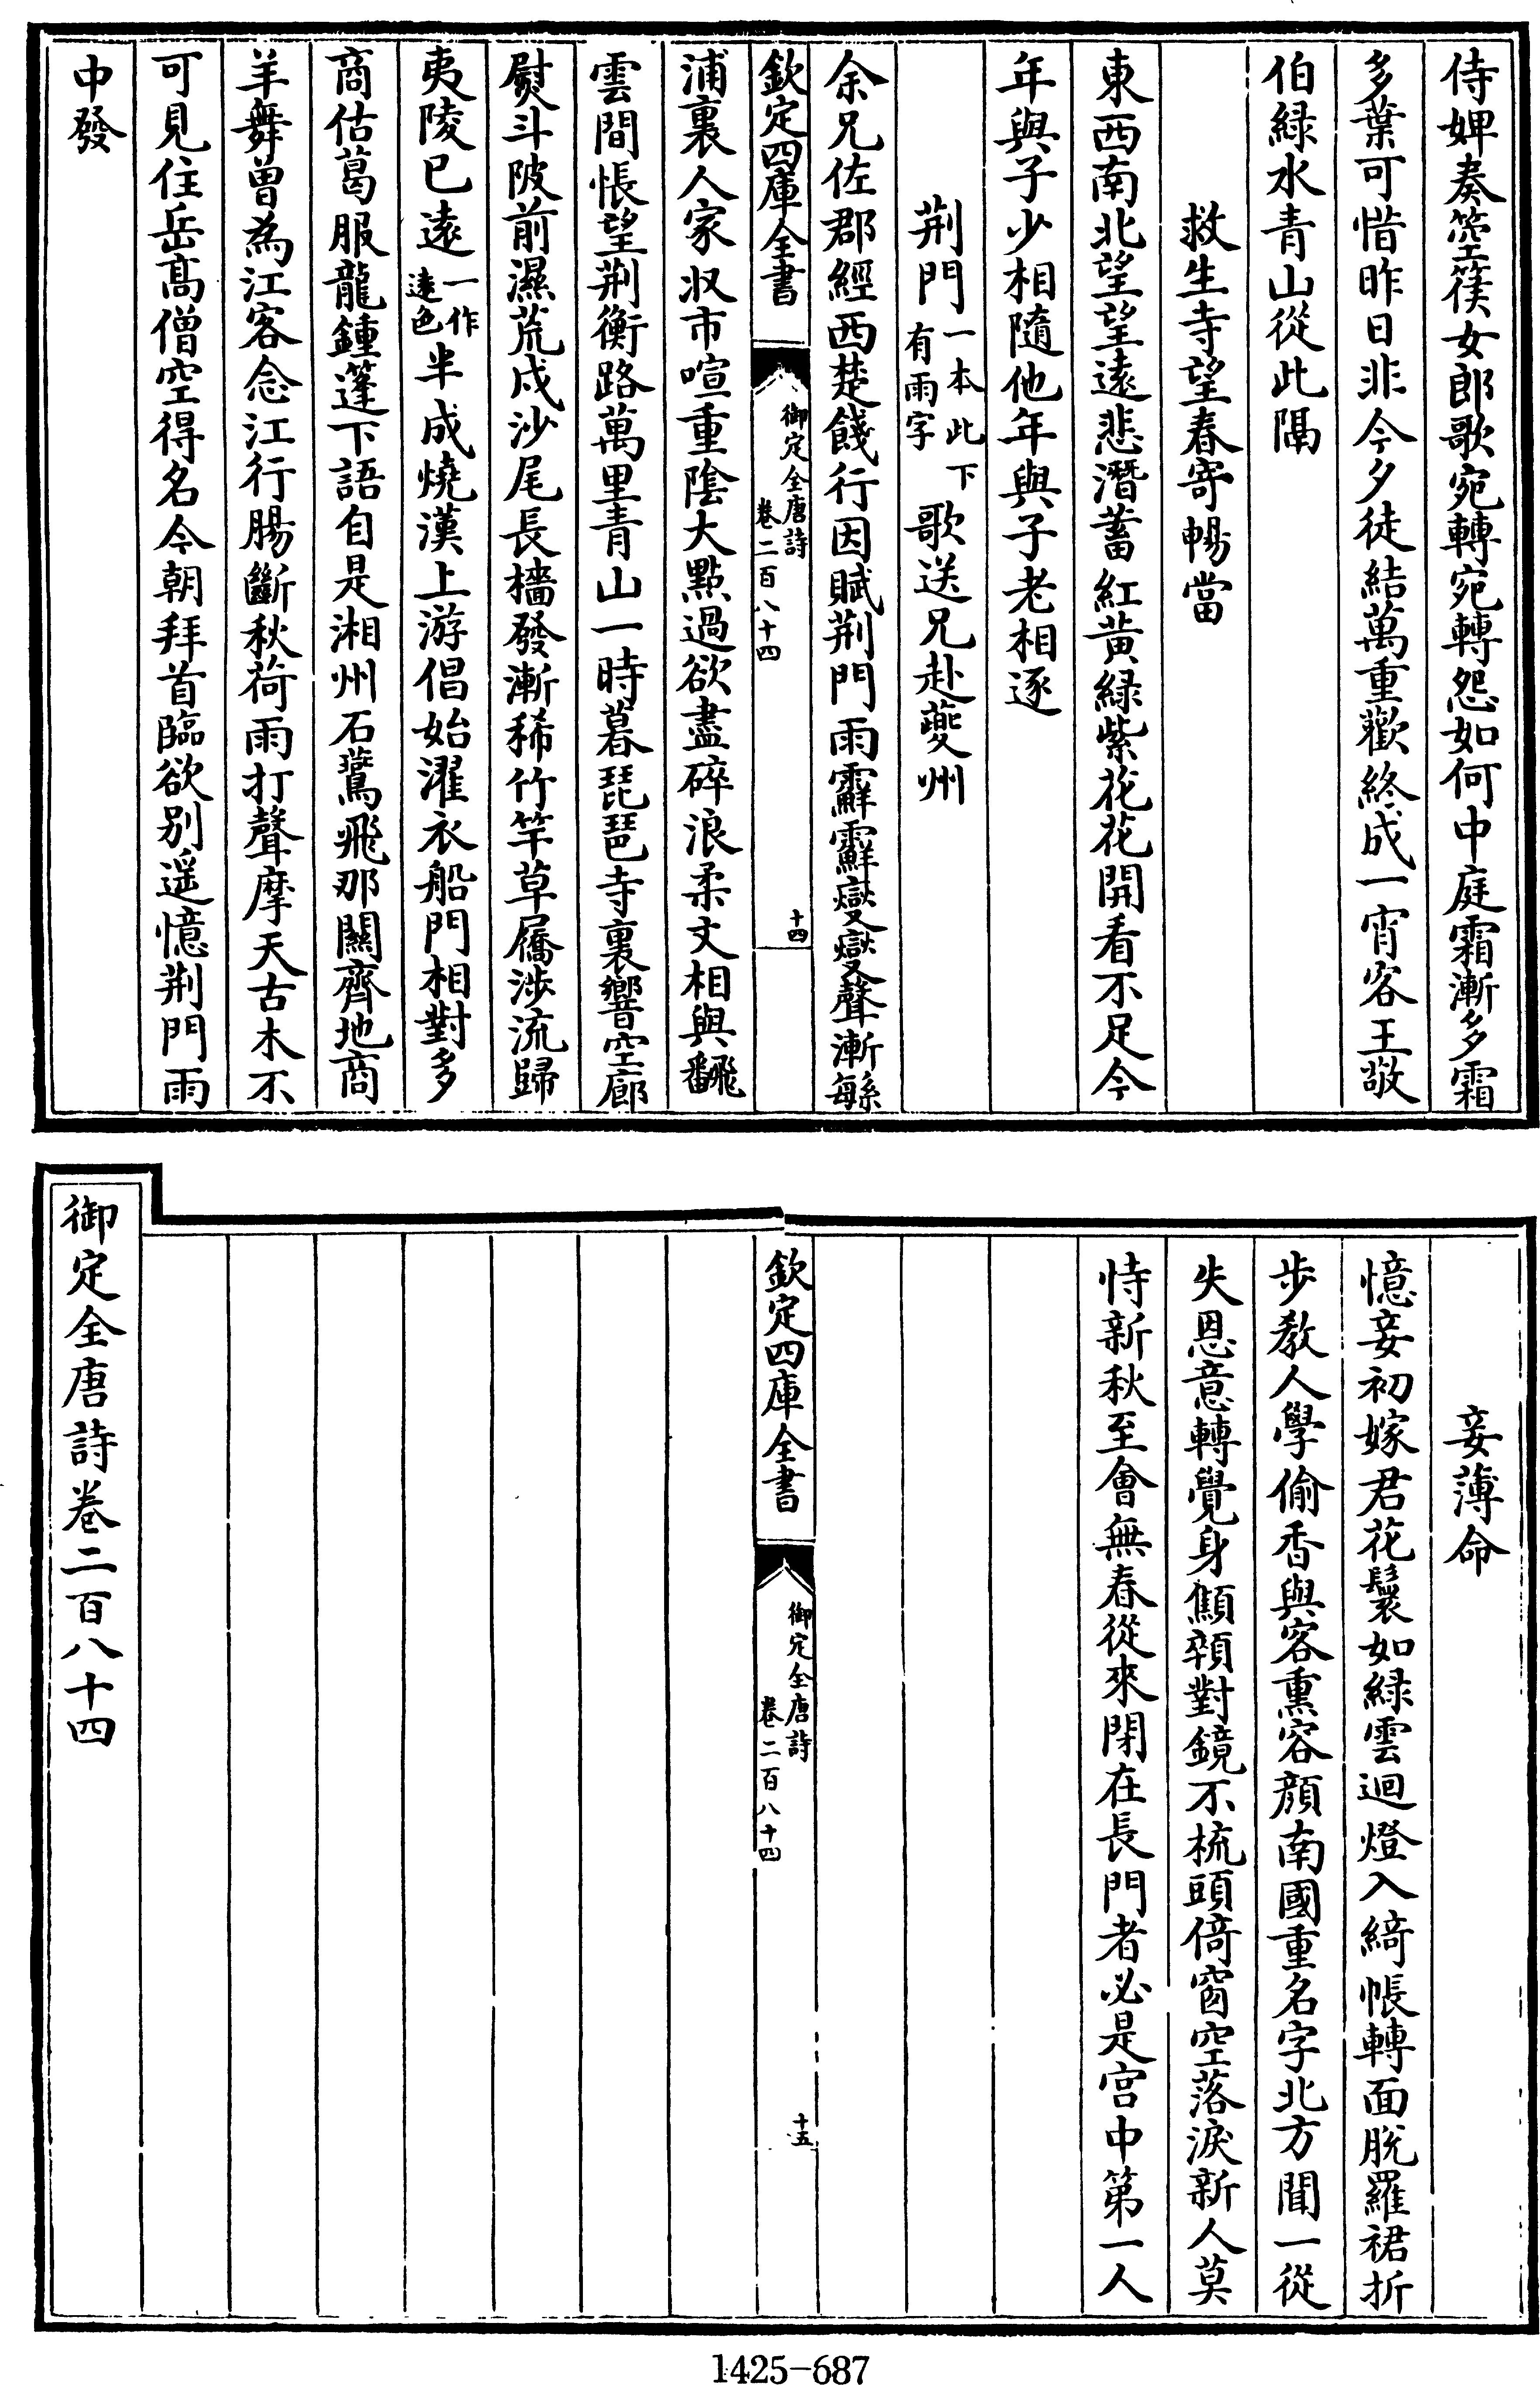 侍婢奏箜篌女郎歌宛轉宛轉怨如何中庭霜漸多霜
多葉可惜昨日非今夕徒結萬重歡終成一宵客王敬
伯緑水青山從此隔
救生寺望春寄暢當
東西南北望望遠悲潛蓄紅黄緑紫花花開看不足今
年與子少相隨他年與子老相逐
荆門一本此下有雨字歌送兄赴夔州
余兄佐郡經西楚餞行因賦荆門雨霢霢燮燮聲漸緐
欽定四庫全書
御定全唐詩
卷二百八十四
十四
浦裏人家收市喧重陰大點過欲盡碎浪柔文相與飜
雲間悵望荆衡路萬里青山一時暮琵琶寺裏響空廊
熨斗陂前濕荒戍沙尾長檣發漸稀竹竿草屩涉流歸
夷陵已遠一作遠色半成燒漢上游倡始濯衣船門相對多
商估葛服龍鍾篷下語自是湘州石鷰飛那關齊地商
羊舞曾為江客念江行腸斷秋荷雨打聲摩天古木不
可見住岳髙僧空得名今朝拜首臨欲别遥憶荆門雨
中發
妾薄命
憶妾初嫁君花鬟如緑雲迴燈入綺帳轉面脱羅裙折
步教人學偷香與客熏容顔南國重名字北方聞一從
失恩意轉覺身顦顇對鏡不梳頭倚窗空落淚新人莫
恃新秋至會無春從來閉在長門者必是宫中第一人
欽定四庫全書
御定全唐詩
卷二百八十四
十五
御定全唐詩卷二百八十四
1425-687